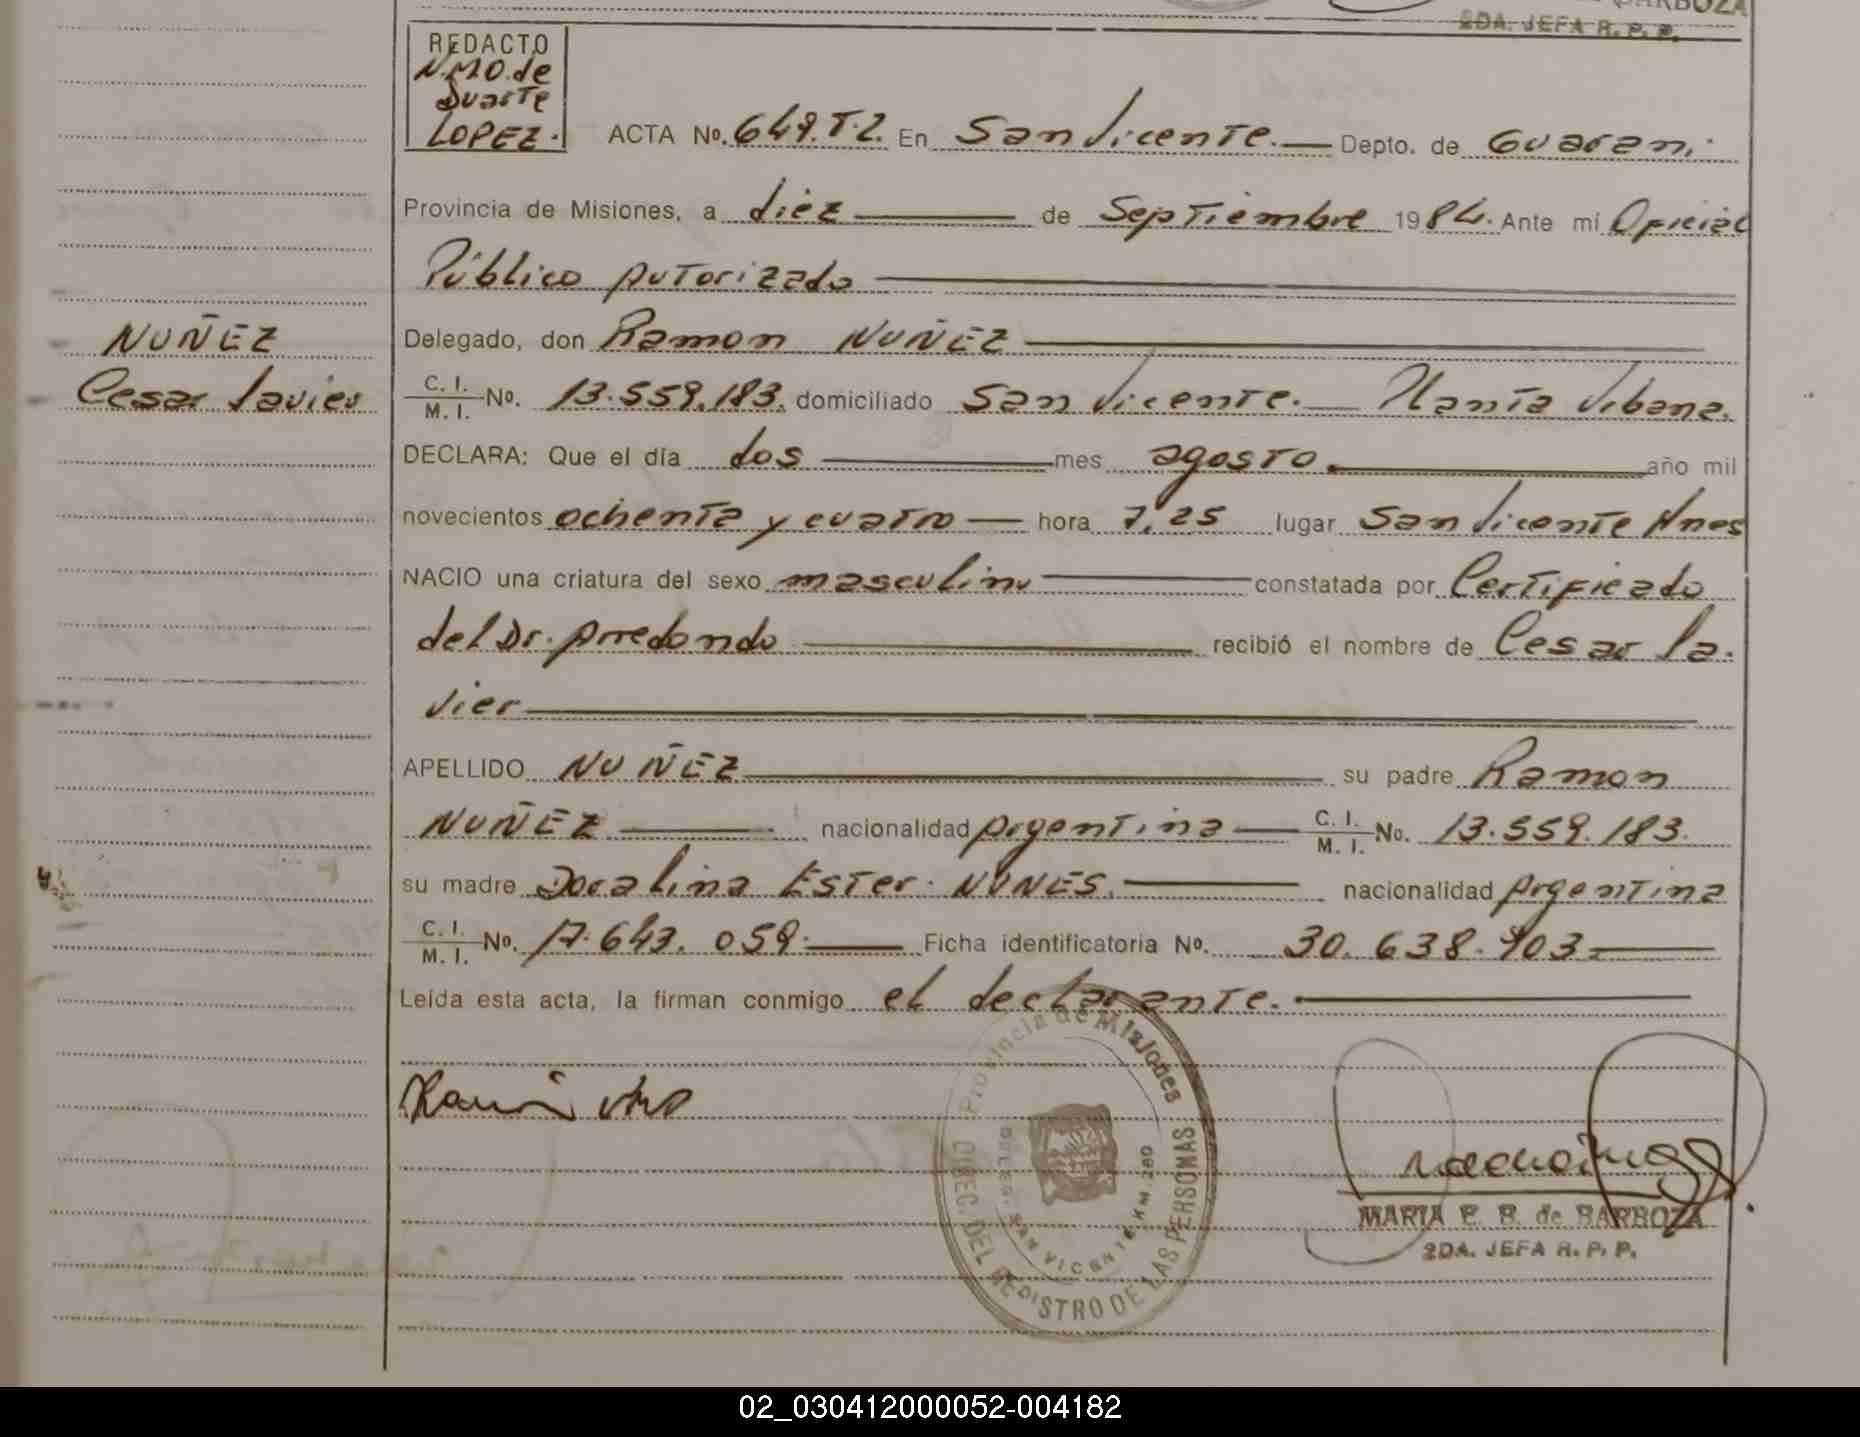 BARBOZA
2DA. JEFA R. P. P.
REDACTO
N.M.O. de
Duarte
LOPEZ.
ACTA No. 649. T.2. En San Vicente. Depto. de Guaraní.
Provincia de Misiones, a diez de Septiembre 1984. Ante mí Oficial
Público Autorizado
NUÑEZ
Cesar Javier
Delegado, don Ramon NUÑEZ
C. I. M. I. No. 13.559.183. domiciliado San Vicente. Planta Urbana.
DECLARA: Que el día dos mes agosto. año mil
novecientos ochenta y cuatro hora 7,25 lugar San Vicente Mnes
NACIO una criatura del sexo masculino constatada por Certificado
del Dr. Arredondo recibió el nombre de Cesar Ja.
vier
APELLIDO NUÑEZ su padre Ramon
NUÑEZ nacionalidad Argentina C. I. M. I. No. 13.559.183.
su madre Doralina Ester NUNES. nacionalidad Argentina
C. I. M. I. No. 17.643.059. Ficha identificatoria No. 30.638.903
Leída esta acta, la firman conmigo el declarante.
Provincia de Misiones
DIREC. DEL REGISTRO DE LAS PERSONAS
SAN VICENTE KM. 280
MARIA E. B. de BARBOZA
2DA. JEFA R. P. P.
02_030412000052-004182